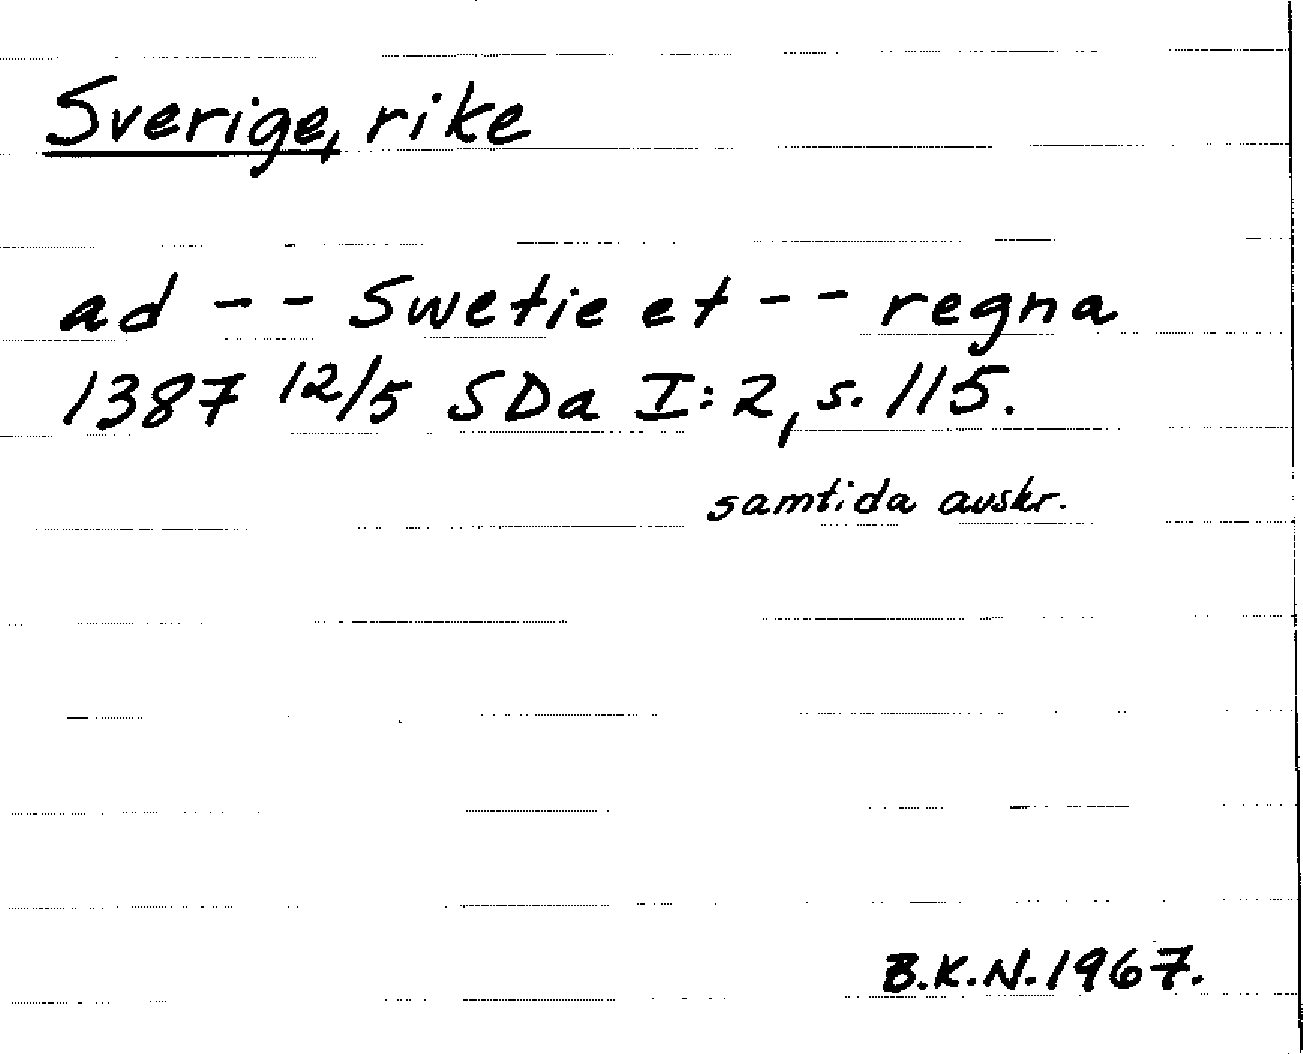 Sverige, rike
ad -- Swetie et -- regna
1387 12/5 SDa I:2, s. 115.
samtida avskr.
B.K.N. 1967.